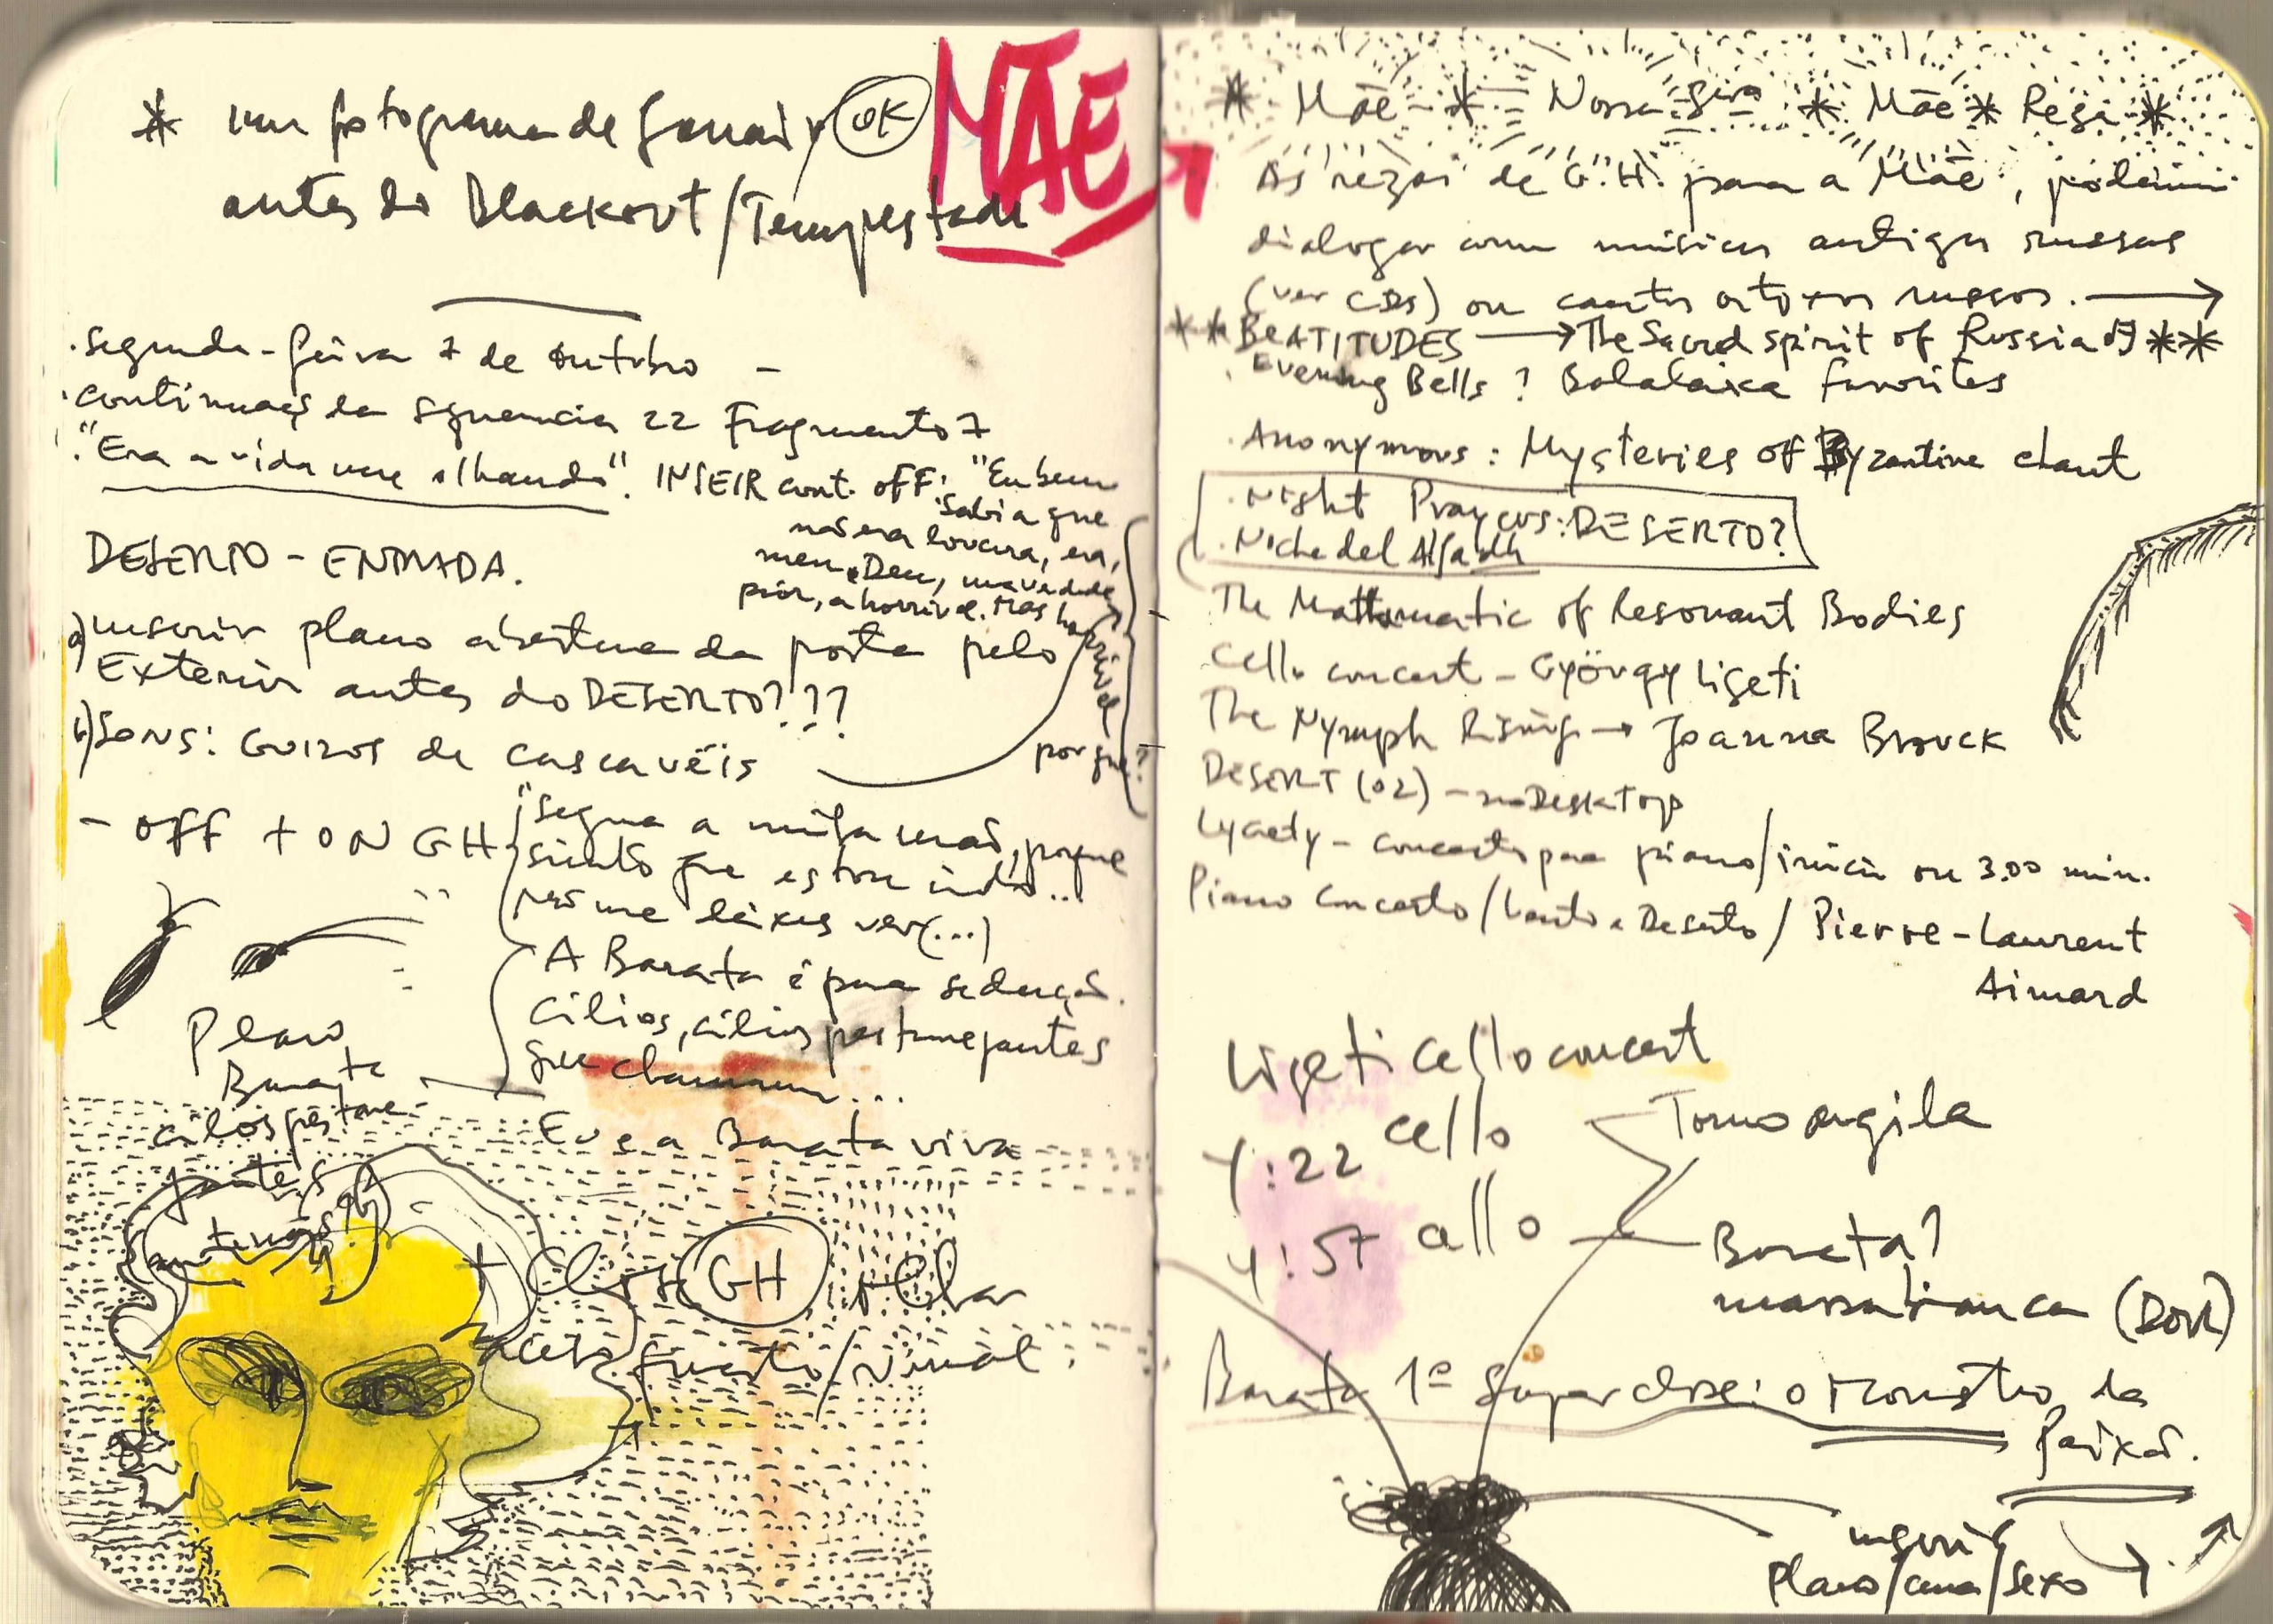 * um fotograma de Janair OK
MÃE
antes do Blackout/Tempestade
. segunda-feira 7 de outubro -
. continuação da sequencia 22 Fragmento 7
. "Era a vida me olhando". INSEIR cont. OFF: "Eu bem
sabia que
não era loucura, era,
meu Deus, uma verdade
pior, a horrível. Mas
horrível
por que?
DESERTO - ENTRADA.
a) inserir plano abertura da porta pelo
Exterior antes do DESERTO???
b) Sons: Guizos de cascavéis
- OFF + ON GH
"Segura a minha mão, porque
sinto que estou indo...
não me deixes ver (...)
A Barata é pura sedução.
Cílios, cílios pestanejantes
que chamam...
Plano
Barata
cílios pestane-
jantes
antenas
Eu e a Barata viva
+ Close GH
frontal
* Mãe * Nossa * Mãe * Reza *
As rezas de G.H. para a Mãe, podem
dialogar com músicas antigas russas
(ver CDs) ou cantos ortoxos russos. →
** BEATITUDES → The Sacred spirit of Russia **
. Evening Bells ? Balalaica favorites
. Anonymous: Mysteries of Byzantine chant
. Night Prayers: DESERTO?
The Mathematic of Resonant Bodies
Cello concert - György Ligeti
The Nymph Rising → Joanna Brouck
DESERT (02) - no Desktop
concerto para piano/início ou 3.00 min.
Piano Concerto / Lento e Deserto / Pierre-Laurent
Aimard
Ligeti cello concert
4:22 cello
Torno argila
4:57 cello
Barata?
massa branca (DOR)
Barata 1º Super close: o Monstro da
Paixão.
inserir
plano/cena/sexo →